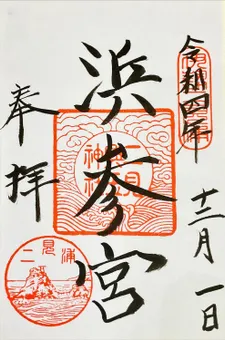 令和四年
十二月一日
浜参宮
二見
神社
奉拝
二見浦